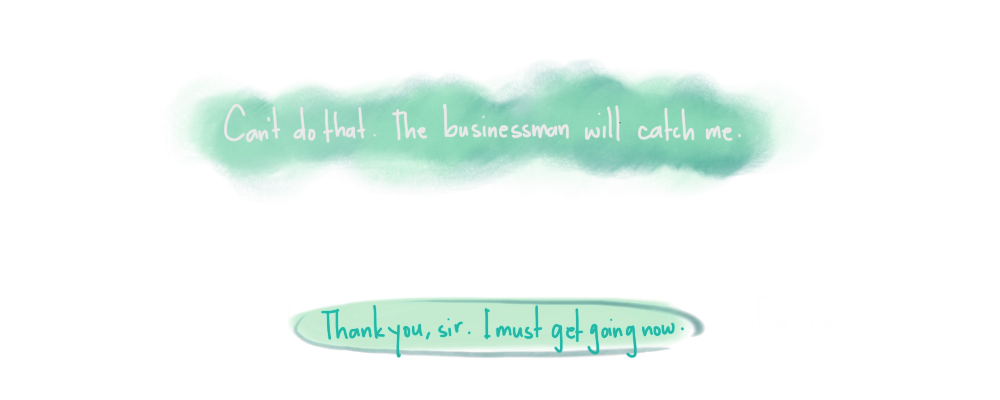 Can't do that. The businessman will catch me.
Thank you, sir. I must get going now.